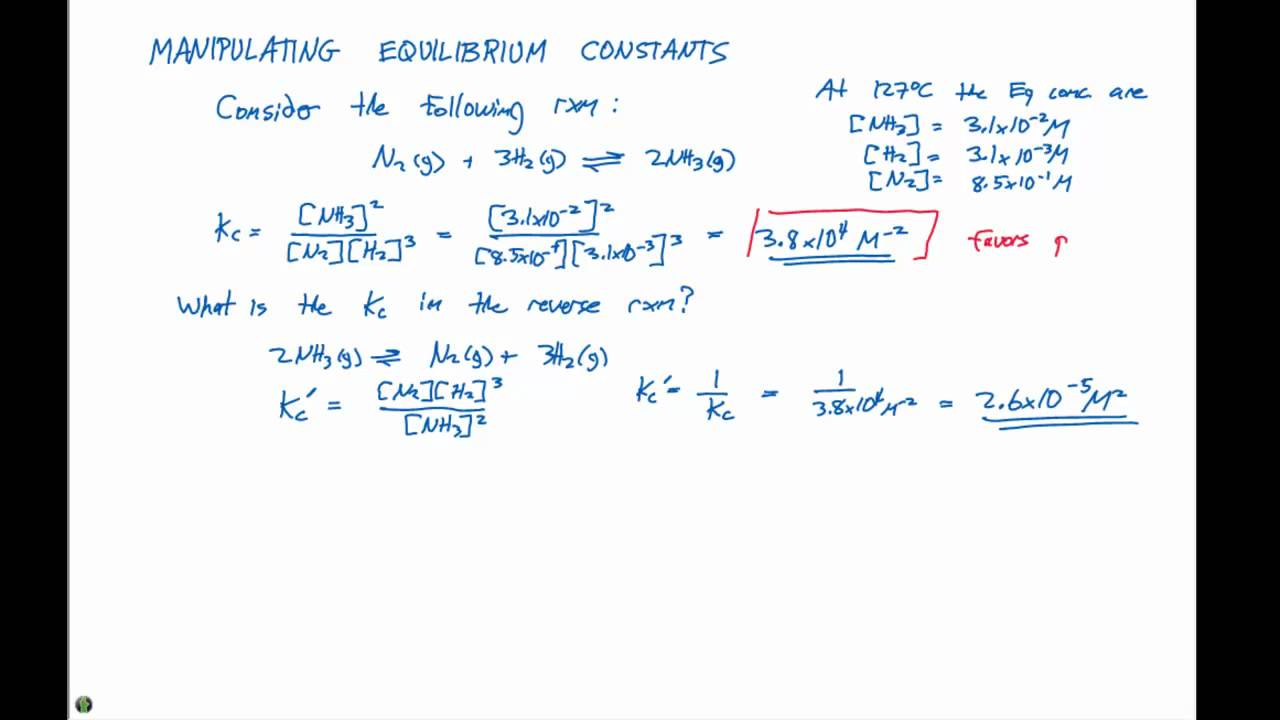 MANIPULATING EQUILIBRIUM CONSTANTS
Consider the following rxn :
N₂(g) + 3H₂(g) ⇌ 2NH₃(g)
At 127°C the Eq conc are
[NH₃] = 3.1x10⁻²M
[H₂] = 3.1x10⁻³M
[N₂] = 8.5x10⁻¹M
Kc = [NH₃]² / [N₂][H₂]³ = [3.1x10⁻²]² / [8.5x10⁻¹][3.1x10⁻³]³ = 3.8x10⁴ M⁻² favors p
What is the Kc in the reverse rxn?
2NH₃(g) ⇌ N₂(g) + 3H₂(g)
Kc' = [N₂][H₂]³ / [NH₃]²
Kc' = 1 / Kc = 1 / 3.8x10⁴M⁻² = 2.6x10⁻⁵M²